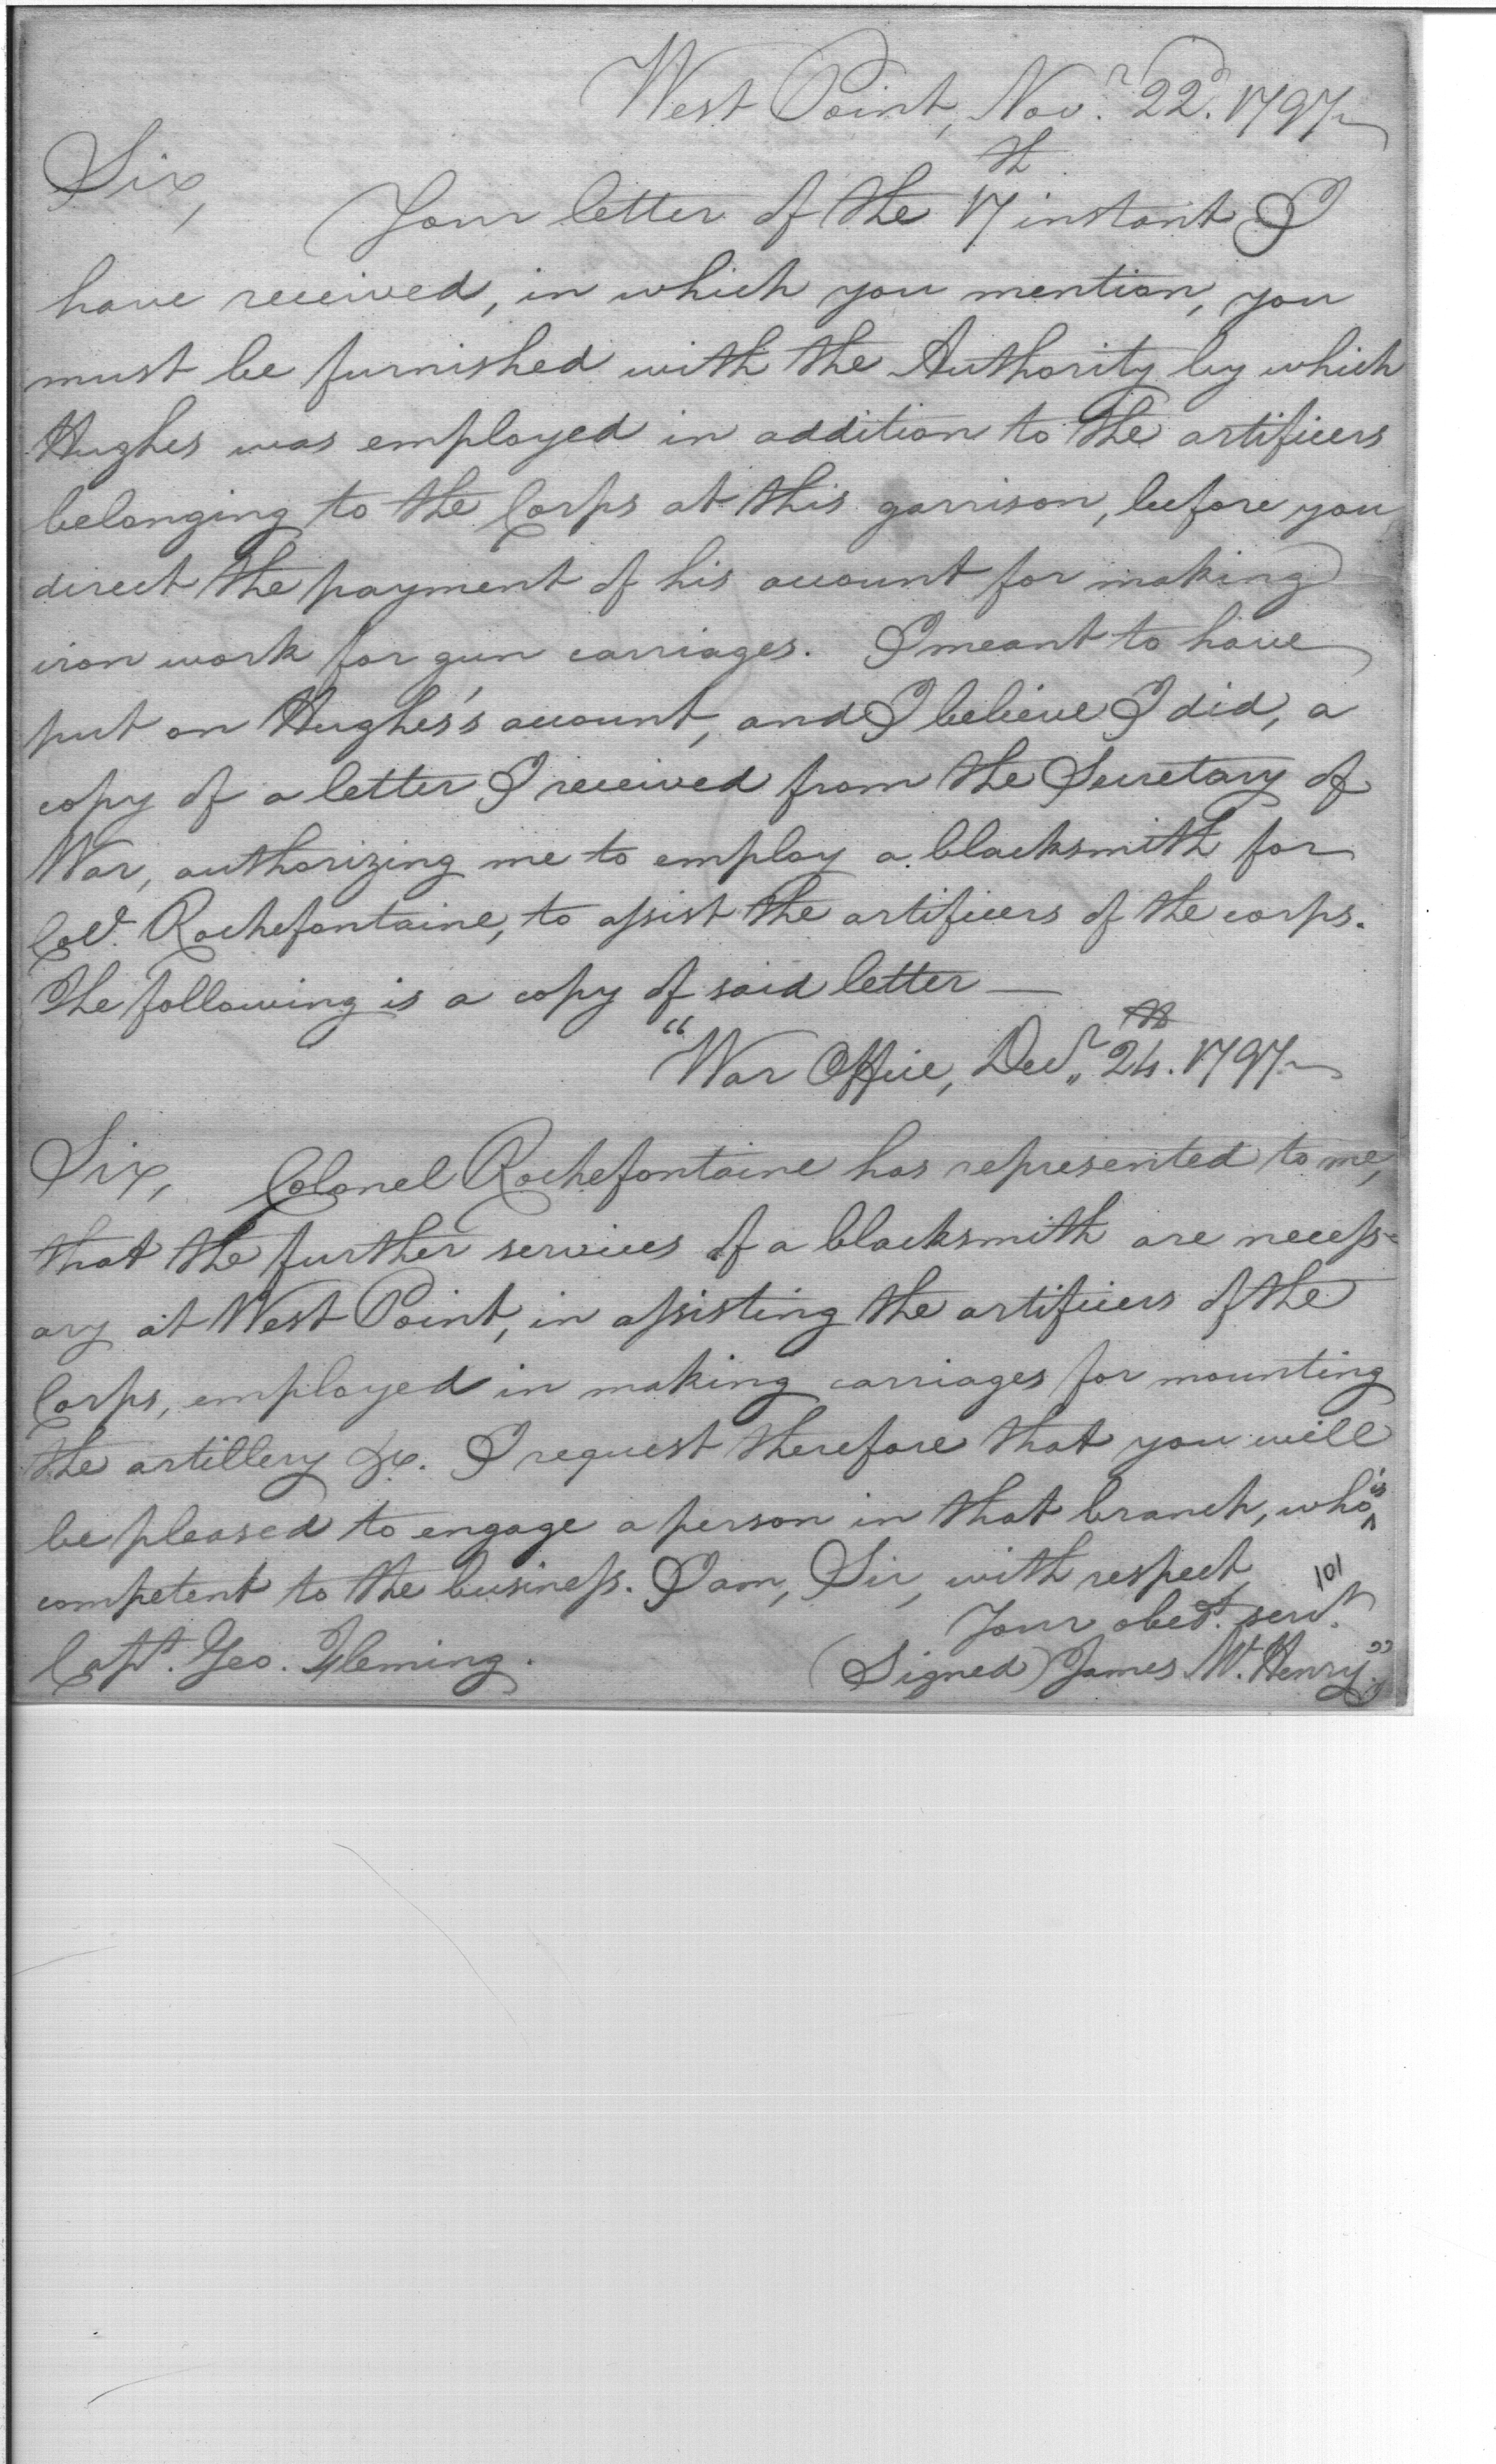 West Point, Novr. 22d. 1797
Sir,
Your letter of the 17th instant I
have received, in which you mention, you
must be furnished with the Authority by which
Hughes was employed in addition to the artificers
belonging to the Corps at this garrison, before you
direct the payment of his account for making
iron work for gun carriages. I meant to have
put on Hughes's account, and I believe I did, a
copy of a letter I received from the Secretary of
War, authorizing me to employ a blacksmith for
Col. Rochefontaine, to assist the artificers of the corps.
The following is a copy of said letter —
"War Office, Decr. 24th. 1797
Sir, Colonel Rochefontaine has represented to me,
that the further services of a blacksmith are necess-
ary at West Point, in assisting the artificers of the
Corps, employed in making carriages for mounting
the artillery &c. I request therefore that you will
be pleased to engage a person in that branch, who is
competent to the business. I am, Sir, with respect,
101
Your obedt. servt.
Capt. Geo. Fleming.
(Signed) James Mc.Henry."